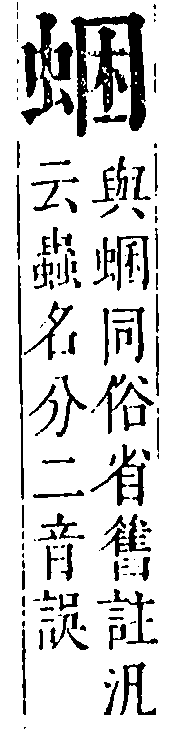 與蜠同俗省舊註汎
云蟲名分二音誤